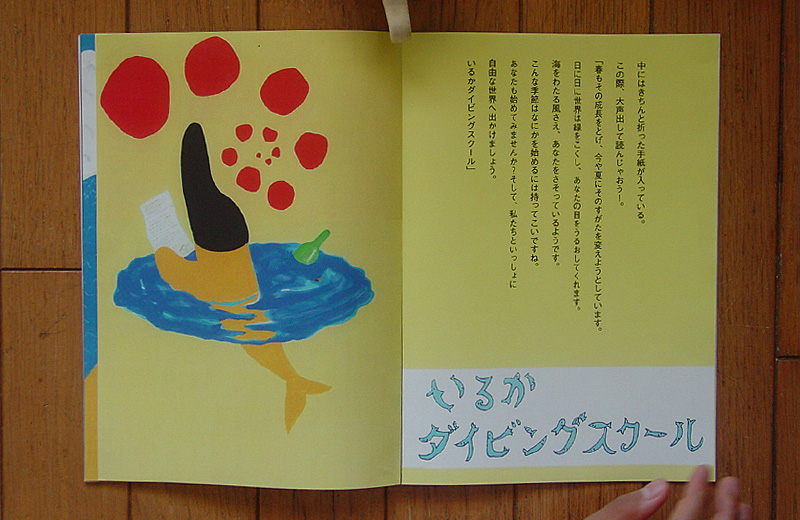 中にはきちんと折った手紙が入っている。
この際、大声出して読んじゃおう!。
「春もその成長をとげ、今や夏にそのすがたを変えようとしています。
日に日に世界は緑をこくし、あなたの目をうるおしてくれます。
海をわたる風さえ、あなたをさそっているようです。
こんな季節はなにかを始めるには持ってこいですね。
あなたも始めてみませんか?そして、私たちといっしょに
自由な世界へ出かけましょう。
いるかダイビングスクール」
いるか
ダイビングスクール